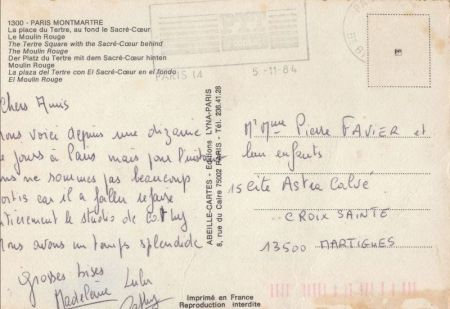 1300 - PARIS MONTMARTRE
La place du Tertre, au fond le Sacré-Cœur
Le Moulin Rouge
The Tertre Square with the Sacré-Cœur behind
The Moulin Rouge
Der Platz du Tertre mit dem Sacré-Cœur hinten
Moulin Rouge
La plaza del Tertre con El Sacré-Cœur en el fondo
El Moulin Rouge
PARIS 14 5-11-84
Chers Amis
nous voici depuis une dizaine
de jours à Paris mais pour
nous ne sommes pas beaucoup
sortis car il a fallu refaire
entièrement le studio de Cathy
Nous avons un temps splendide
Grosses bises
Madeleine Lulu
Cathy
ABEILLE-CARTES - Editions LYNA-PARIS
8, rue du Caire 75002 PARIS - Tél. 236.41.28
Mr Mme Pierre FAVIER et
leurs enfants
15 Cité Astra Calvé
CROIX SAINTE
13500 MARTIGUES
Imprimé en France
Reproduction interdite